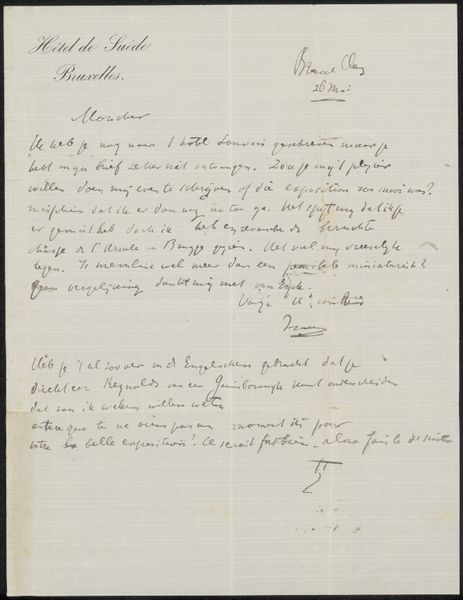 Hôtel de Suède
Bruxelles.
Bruxelles
26 Mai
Moncher
Ik heb je nog naar 't hotel geschreven maar je
hebt mijn brief zeker niet ontvangen. Zou je mij 't plezier
willen doen mij even te schrijven of die exposition zoo mooi was?
dat ik er dan nog naar toe ga. Het spijt mij dat ik je
er gemist heb doch ik heb de beruchte
châsse de St Ursule in Brugge gezien. Het viel mij vreeselijk
tegen. Is Memline wel meer dan een miniaturist?
vergelijking dunkt mij met van Eyck.
Heb je 't al zoo ver in de Engelschen gebracht dat je
direkt een Reynolds van een Gainsborough kunt onderscheiden
dat zou ik weleens willen weten
est ce que tu ne viens pas un moment ici pour
voir la belle exposition? Ce serait fort bien, alors